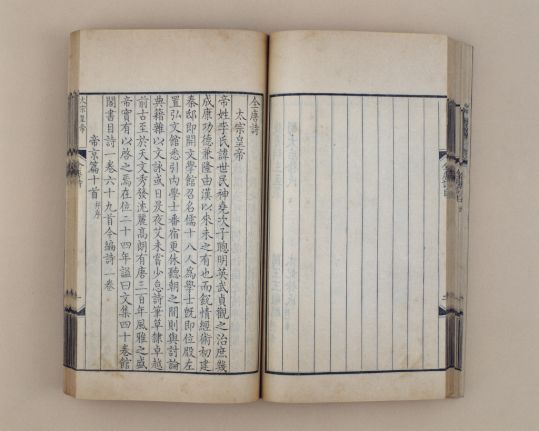 全唐詩
太宗皇帝
帝姓李氏諱世民神堯次子聰明英武貞觀之治庶幾
成康功德兼隆由漢以來未之有也而銳情經術初建
秦邸即開文學館召名儒十八人為學士既即位殿左
置弘文館悉引內學士番宿更休聽朝之間則與討論
典籍雜以文詠或日昃夜艾未嘗少怠詩筆草隸卓越
前古至於天文秀發沈麗高朗有唐三百年風雅之盛
帝實有以啓之焉在位二十四年諡曰文集四十卷館
閣書目詩一卷六十九首今編詩一卷
帝京篇十首 并序
太宗皇帝